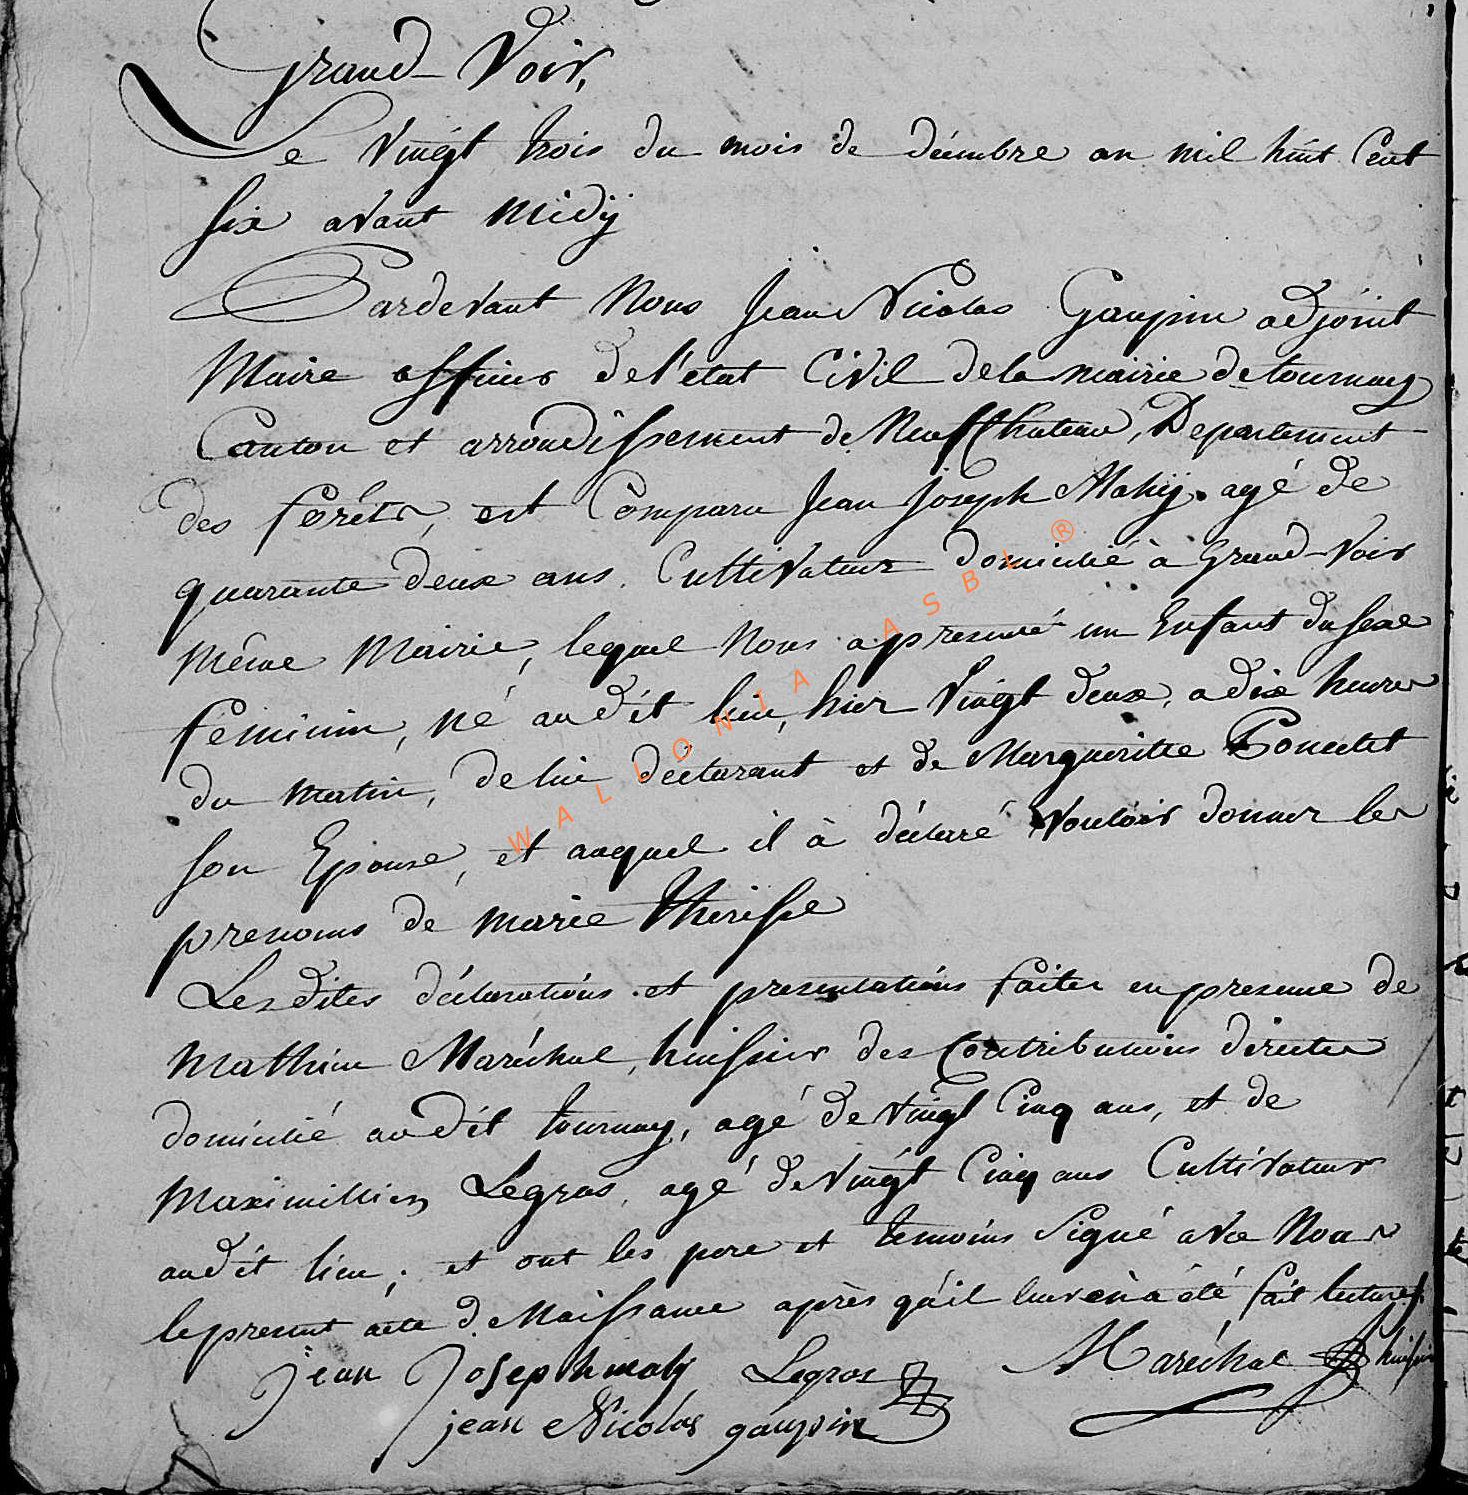 Grand Voir,
Le vingt trois du mois de décembre an mil huit Cent
six avant Midÿ
Pardevant Nous Jean Nicolas Gaupin adjoint
Maire officier de l'etat Civil dela mairie de tournay
Canton et arrondissement de NeufChateau, Departement
des forêts, est Comparu Jean Joseph Mahÿ agé de
quarante deux ans Cultivateur domicilié à Grand-Voir
même Mairie, lequel Nous a presenté un Enfant du sexe
feminin, né audit lieu, hier Vingt deux, a dix heures
du matin, de lui déclarant et de Margueritte Poncelet
son Epouse, et auquel il à déclaré Vouloir donner les
prenoms de marie therisse
Les dites déclarations et presentations faites en presence de
Mathieu Maréchal, huissier des Contributions directes
domicilié audit tournay, agé de vingt Cinq ans, et de
Maximillien Legros, agé de Vingt Cinq ans Cultivateur
audit lieu; et ont les pere et temoins Signé avec Nous
le present acte de Naissance après qu'il leur en à été fait lecture
jean Josephmahÿ Legros Maréchal huissier
jean Nicolas gaupin
WALLONIA ASBL ®